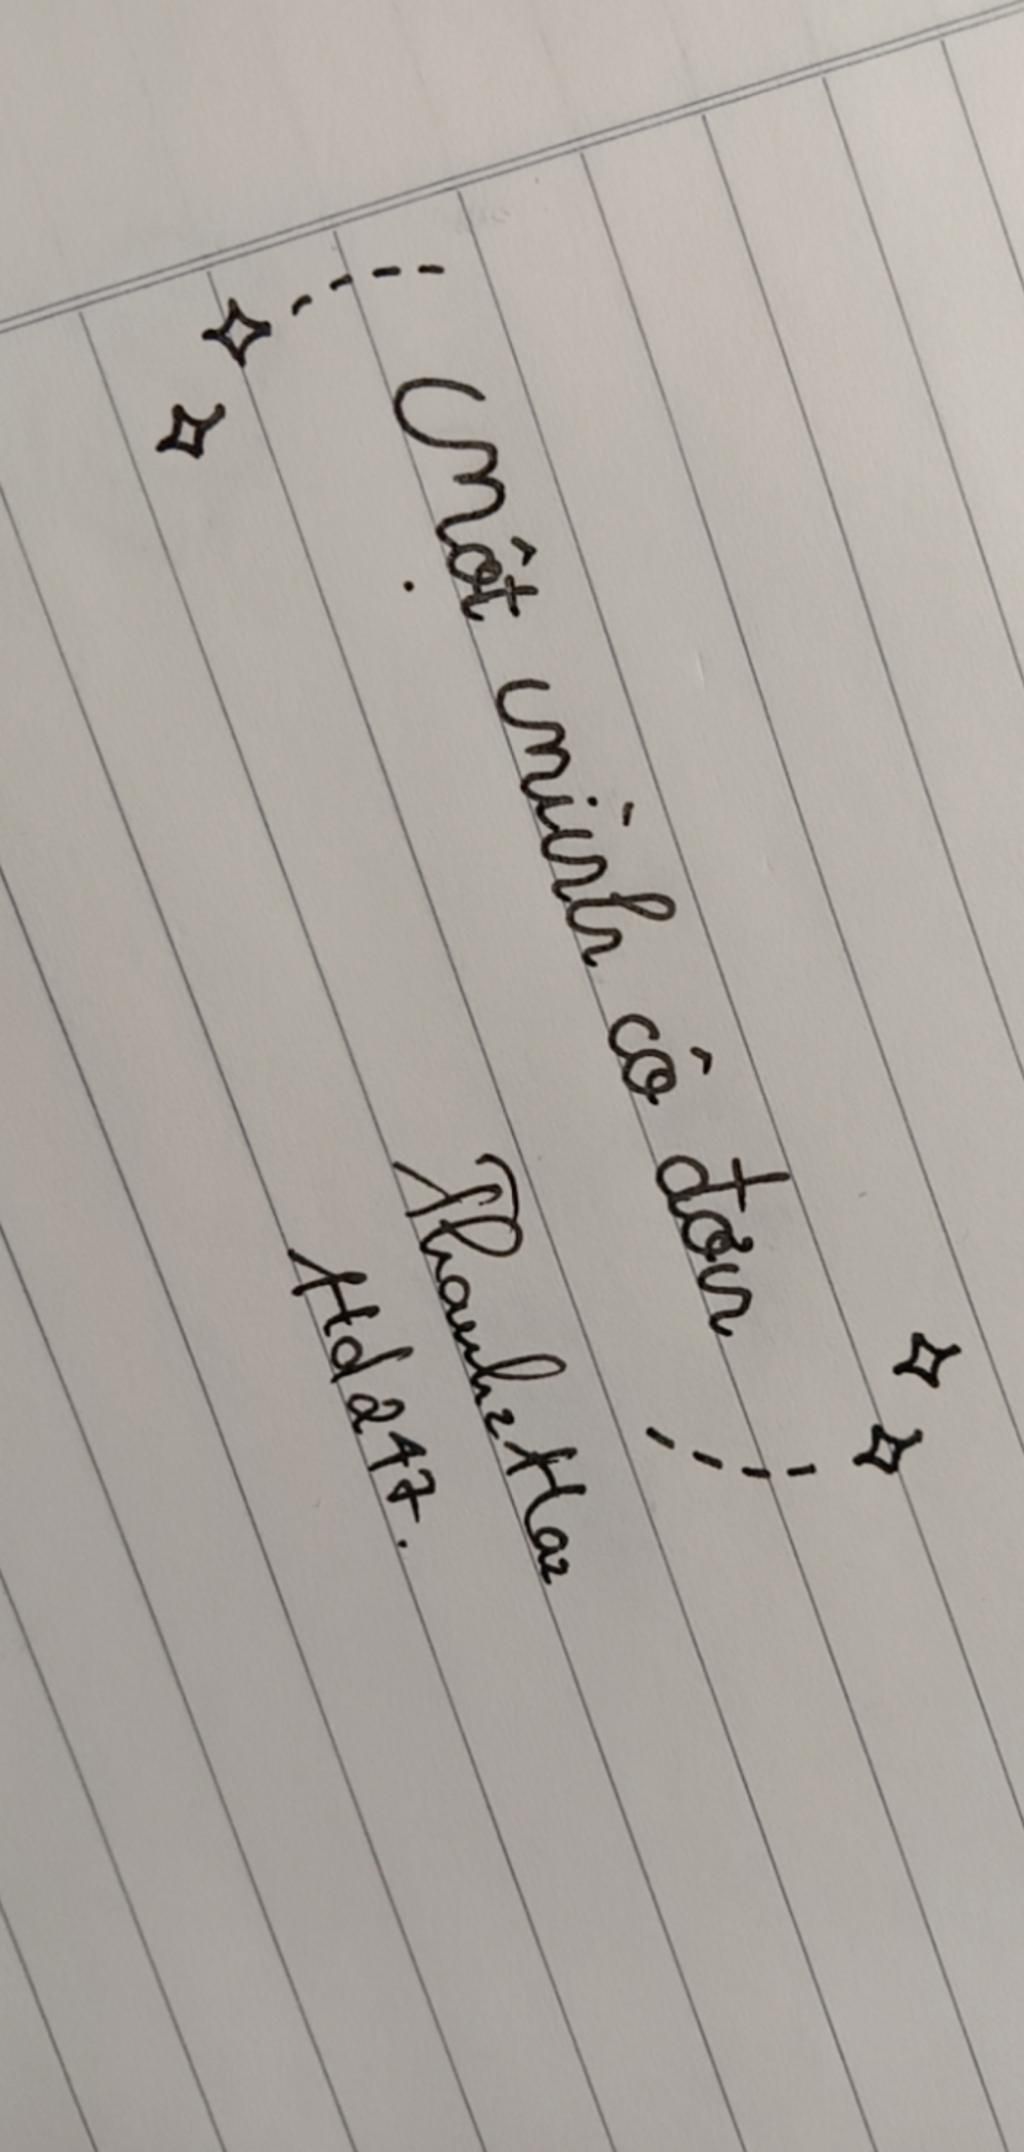 Một mình cô đơn
Thanh Hoa
Hd247.